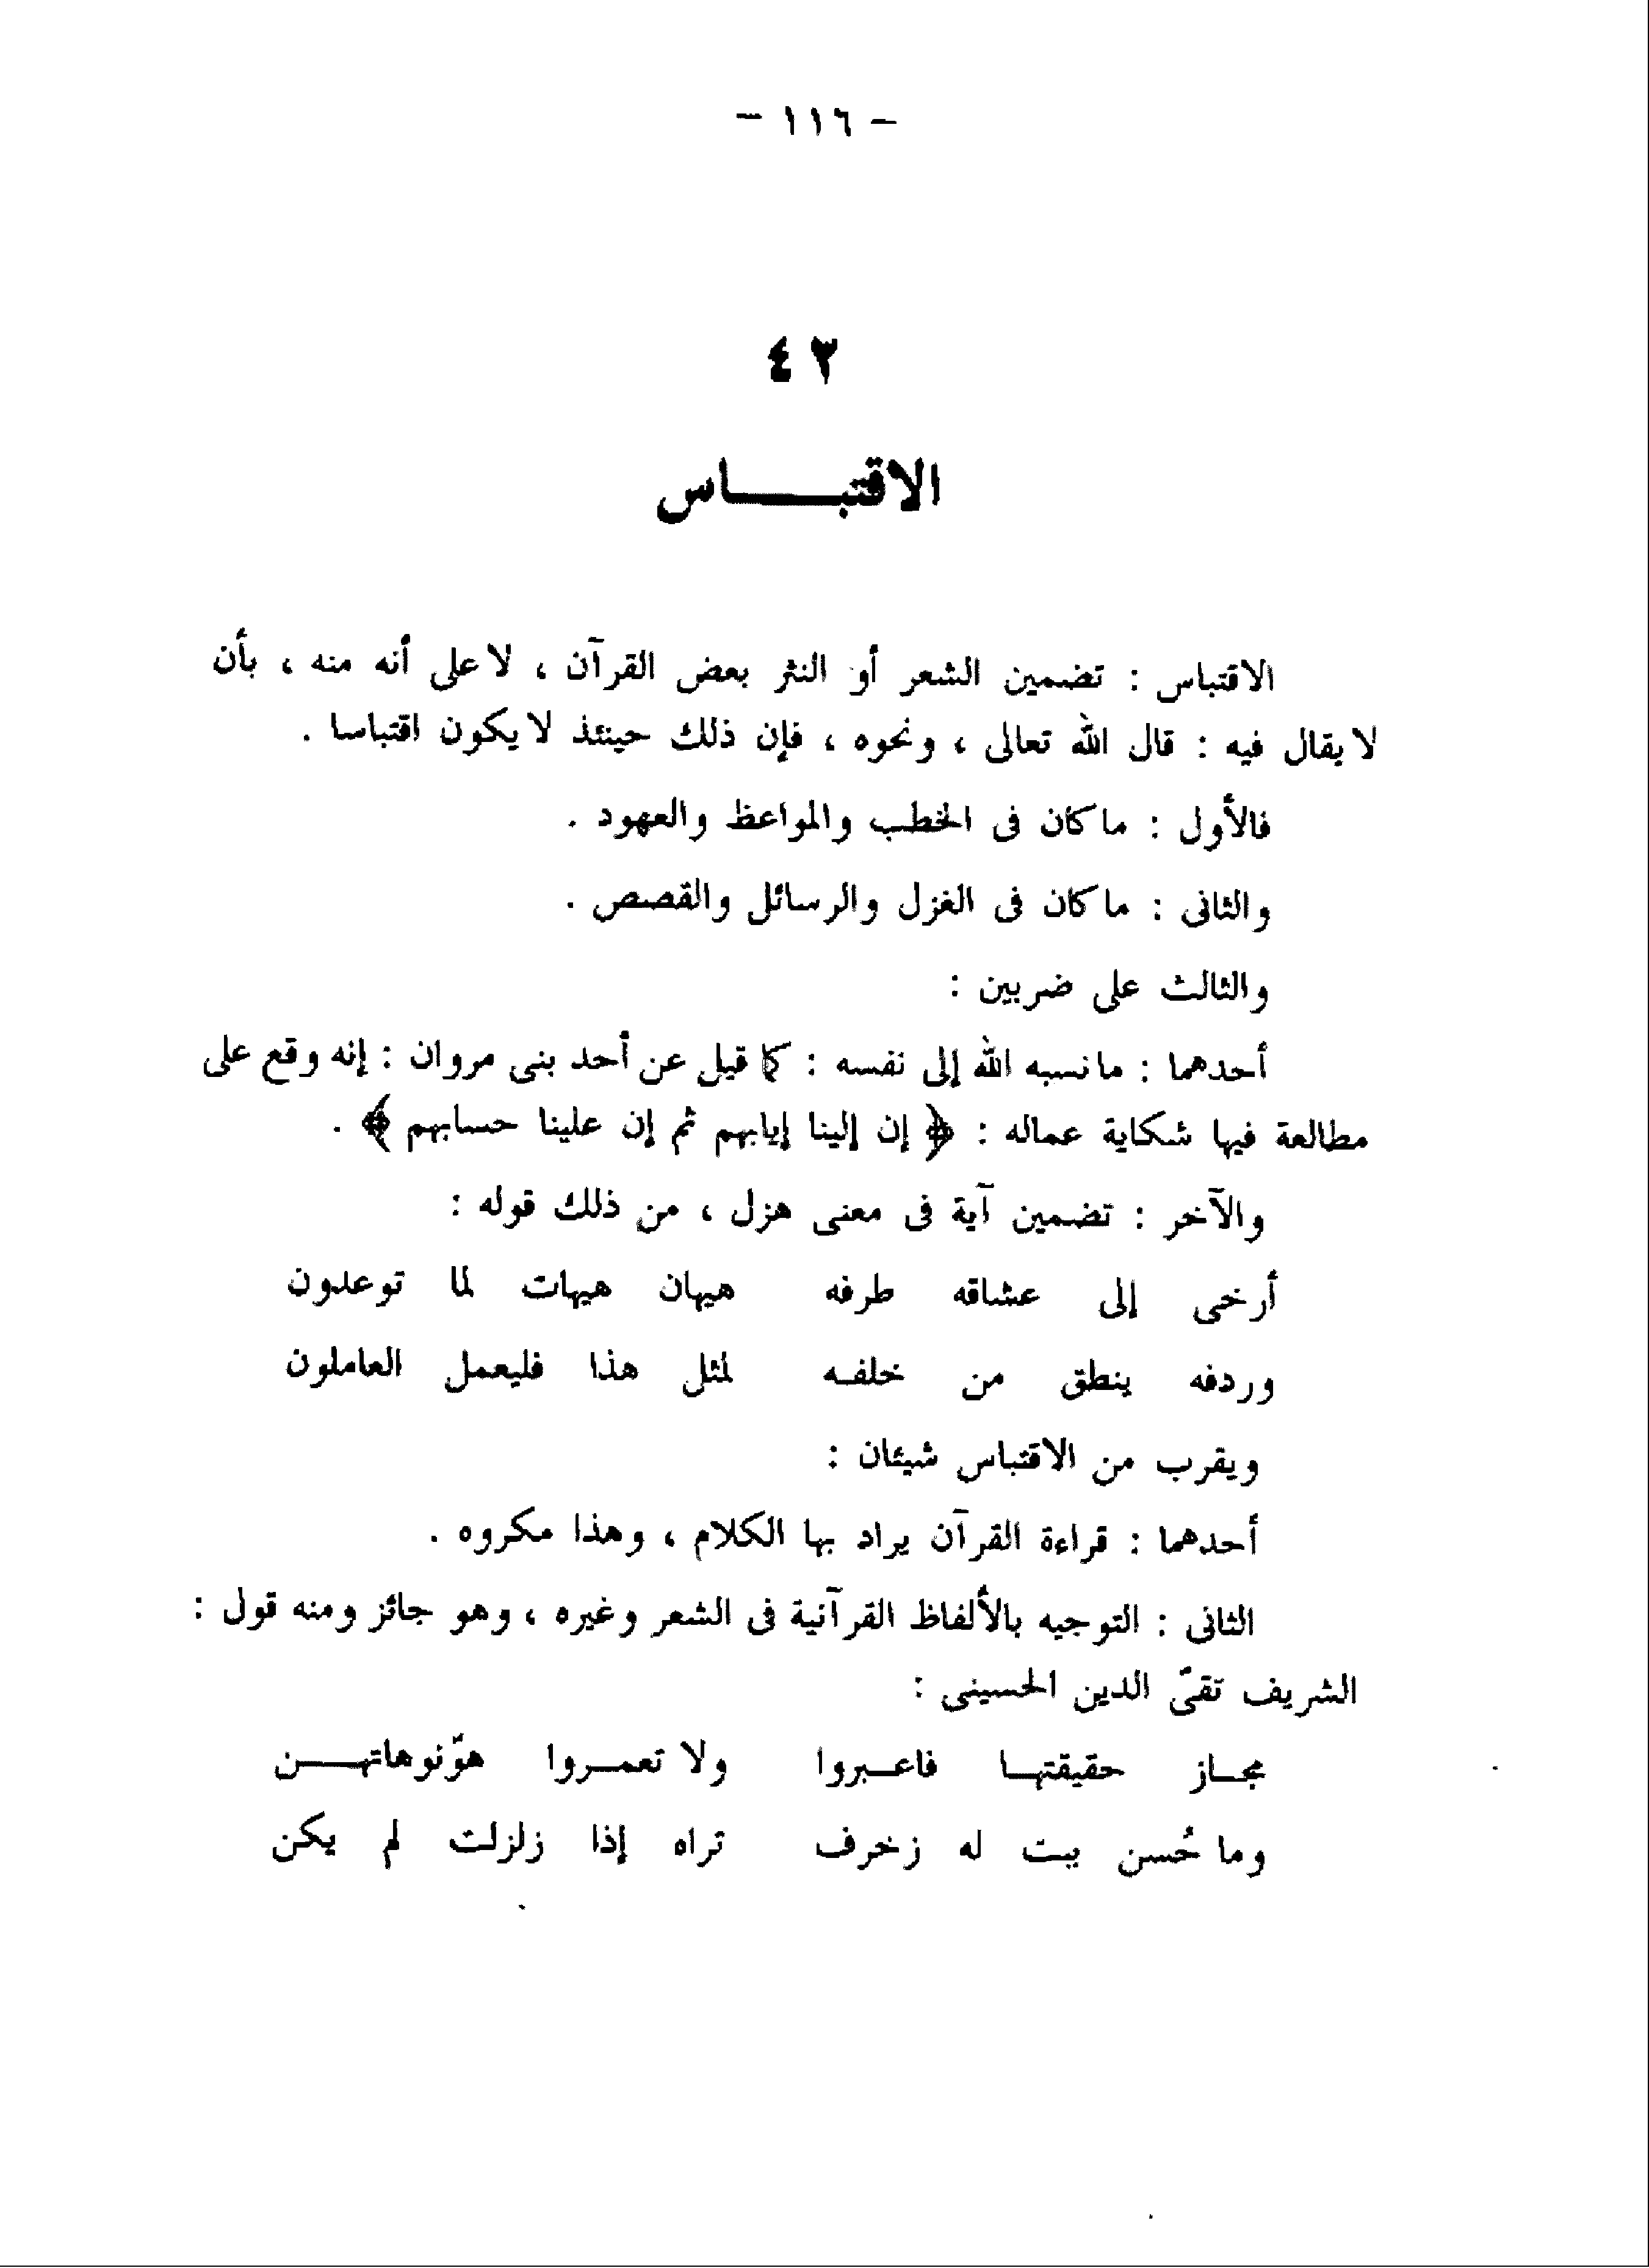 – ١١٦ –
٤٣
الاقتباس
الاقتباس : تضمين الشعر أو النثر بعض القرآن ، لا على أنه منه ، بأن
لا يقال فيه : قال الله تعالى ، ونحوه ، فإن ذلك حينئذ لا يكون اقتباسا .
فالأول : ما كان فى الخطب والمواعظ والعهود .
والثانى : ما كان فى الغزل والرسائل والقصص .
والثالث على ضربين :
أحدهما : ما نسبه الله إلى نفسه : كما قيل عن أحد بنى مروان : إنه وقع على
مطالعة فيها شكاية عماله : ﴿ إن إلينا إيابهم ثم إن علينا حسابهم ﴾ .
والآخر : تضمين آية فى معنى هزل ، من ذلك قوله :
أرخى إلى عشاقه طرفه هيهان هيهات لما توعدون
وردفه ينطق من خلفه لمثل هذا فليعمل العاملون
ويقرب من الاقتباس شيئان :
أحدهما : قراءة القرآن يراد بها الكلام ، وهذا مكروه .
الثانى : التوجيه بالألفاظ القرآنية فى الشعر وغيره ، وهو جائز ومنه قول :
الشريف تقىّ الدين الحسينى :
مجاز حقيقتها فاعبروا ولا تعمروا هوّنوهاتهن
وما حُسن بيت له زخرف تراه إذا زلزلت لم يكن